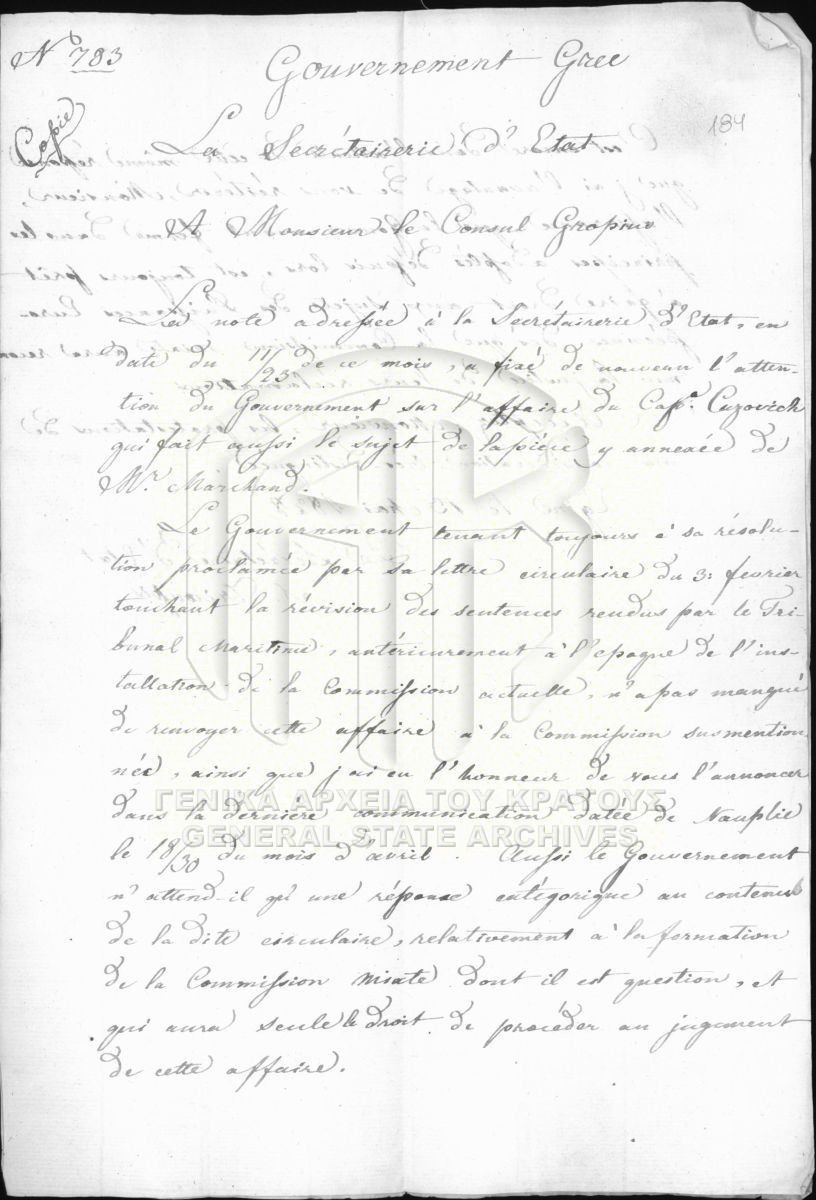 Nº 783
Gouvernement Grec
184
Copie
La Secrétairerie d'Etat
A Monsieur le Consul Gropius
La note adressée à la Secrétairerie d'Etat, en
date du 11/23 de ce mois, a fixé de nouveau l'atten-
tion du Gouvernement sur l'affaire du Capne. Cuzovich
qui fait aussi le sujet de la pièce y annexée de
Mr. Marchand.
Le Gouvernement tenant toujours à sa résolu-
tion proclamée par sa lettre circulaire du 3: fevrier
touchant la révision des sentences rendus par le Tri-
bunal Maritime, antérieurement à l'epoque de l'ins-
tallation de la Commission actuelle, n'a pas manqué
de renvoyer cette affaire à la Commission susmention
née, ainsi que j'ai eu l'honneur de vous l'annoncer
dans la dernière communication datée de Nauplie
le 18/30 du mois d'avril. Aussi le Gouvernement
n'attend-il qu'une réponse catégorique au contenu
de la dite circulaire, relativement à la formation
de la Commission mixte dont il est question, et
qui aura seule le droit de procéder au jugement
de cette affaire.
ΓΕΝΙΚΑ ΑΡΧΕΙΑ ΤΟΥ ΚΡΑΤΟΥΣ
GENERAL STATE ARCHIVES